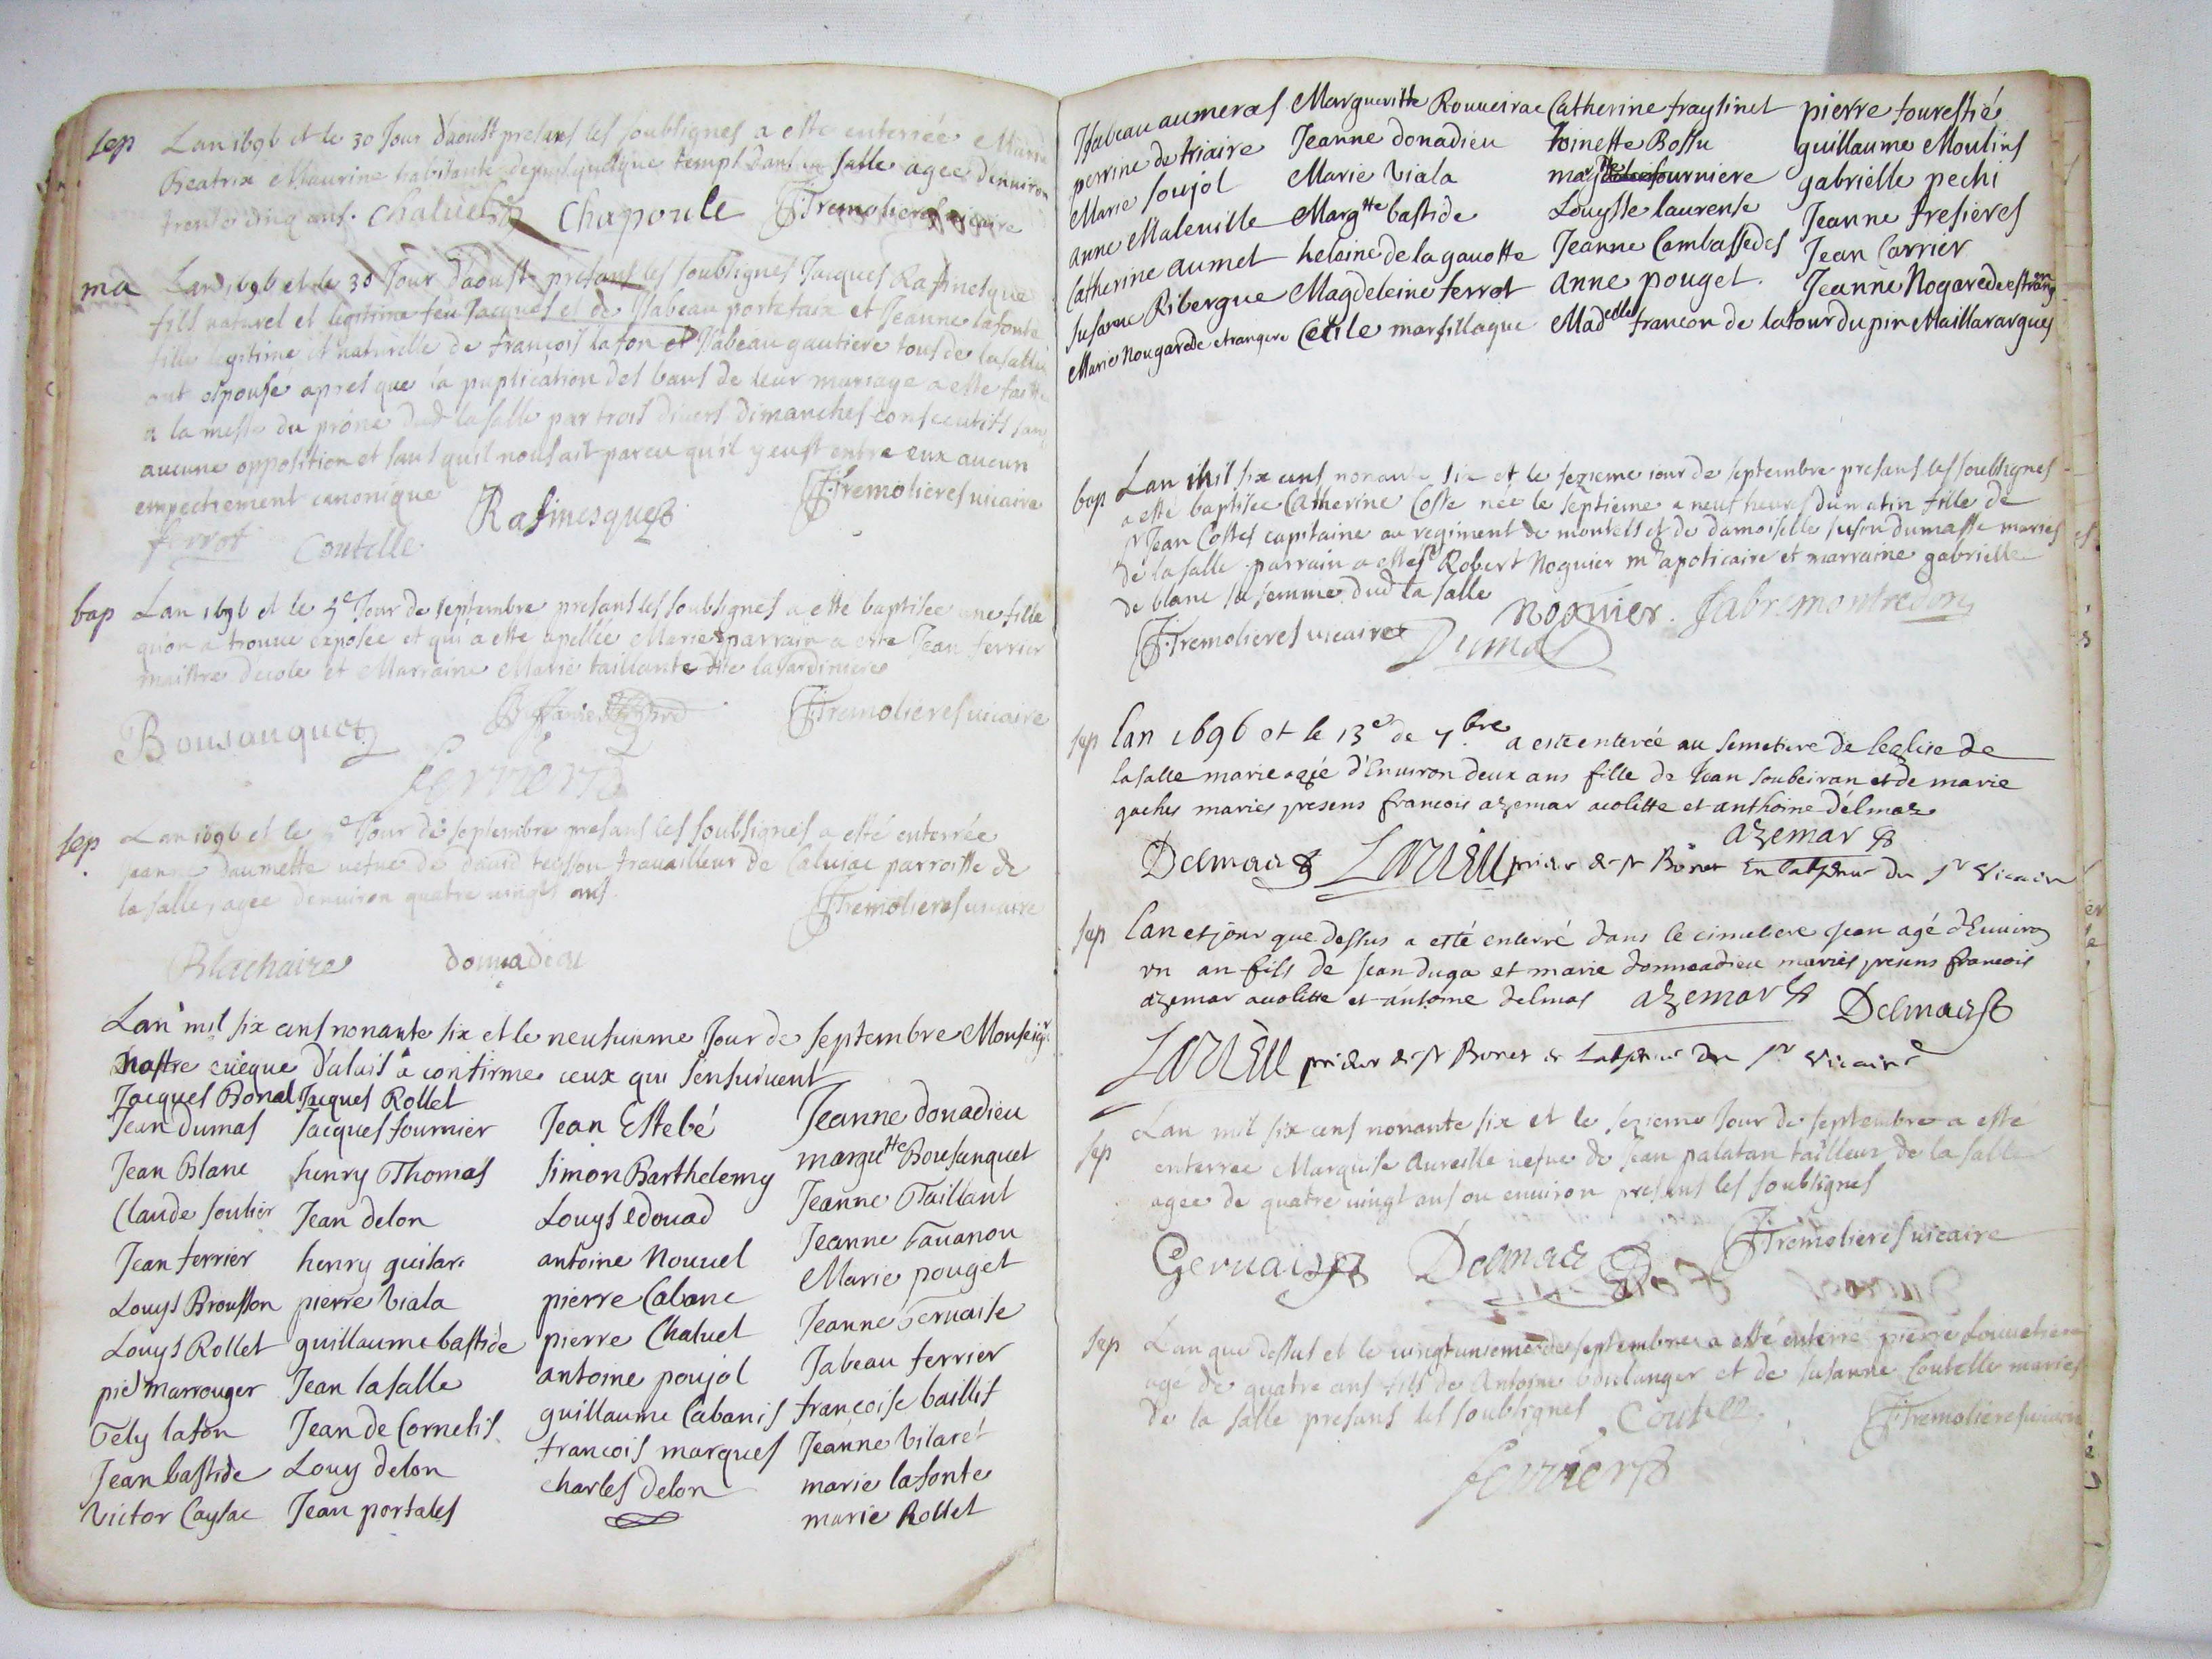 sep Lan 1696 et le 30 Jour daoust presans les soubsignes a este enterrée Marie
Beatrix Maurine habitante depuis quelque temps dans la salle agee denuiron
trente cinq ans. Chaluet Chapoule JTremolieres vicaire
ma Lan 1696 et le 30 Jour daoust presans les soubsignes Jacques Rafinesque
fils naturel et legitime feu Jacques et de Isabeau portefaix et Jeanne lafonte
fille legitime et naturelle de françois lafon et Isabeau gautiere tous de lasalle
ont espousé apres que la puplication des bans de leur mariage a este faitte
a la messe du prône dud lasalle par trois divers dimanches consecutifs sans
aucune opposition et sans quil nous ait pareu qu'il y eust entre eux aucun
empechement canonique Rafinesque JTremolieres vicaire
ferrot Coutelle
bap Lan 1696 et le 5e Jour de septembre presans les soubsignes a esté baptisée une fille
qu'on a trouue exposée et qui a este apellée Marie parrain a esté Jean ferrier
maistre decole et Marraine Marie taillante dite la Jardiniere
Bousanquet JTremolieres vicaire
ferrier
sep Lan 1696 et le Jour de septembre presans les soubsignes a esté enterrée
Jeanne daumette uefue de dauid teisson trauailleur de Calusac parroisse de
la salle, agee denuiron quatre uingts ans. JTremolieres vicaire
Blachaire donnadieu
Lan mil six cens nonante six et le neufuieme Jour de septembre Monseigr.
Nostre euêque d'alais a confirme ceux qui s'ensuiuent
Jacques Bonal Jacques Rollet
Jean dumas Jacques fournier Jean Estebé Jeanne donadieu
Jean Blanc henry Thomas Simon Barthelemy margtte Bousanquet
Claude soulier Jean delon Louys edouad Jeanne Taillant
Jean ferrier henry guitar antoine Nouuel Jeanne Tauanon
Louys Brousson pierre Viala pierre Cabane Marie pouget
Louys Rollet guillaume bastide pierre Chaluet Jeanne Geruaise
pie marrouger Jean lasalle antoine poujol Jabeau ferrier
Gely lafon Jean de Cornelis guillaume Cabanis françoise baillis
Jean bastide Louy delon francois marques Jeanne Vilaret
Victor Caylac Jean portales charles delon marie lafonte
marie Rollet
Isabeau aumeras Margueritte Rouueirac Catherine fraysinet pierre fourestié
perrine de triaire Jeanne donadieu toinette Bossu guillaume Moulins
Marie soujol Marie Viala magd fourniere gabrielle pechi
anne Maleuille Margtte bastide Louysse laurense Jeanne fresieres
Catherine aumet helaine de la gauotte Jeanne Combassedes Jean Carrier
Susanne Ribergue Magdeleine ferrot anne pouget. Jeanne Nogarede estrang
Marie Nougarede etrangere Cecile marsillaque Madelle francon de latour dupin Maillarargues
bap Lan mil six cens nonante six et le sezieme iour de septembre presans les soubsignes
a esté baptisée Catherine Coste née le septieme a neuf heures du matin fille de
sr Jean Costes capitaine au regiment de montels et de damoiselle suson dumasse maries
de lasalle parrain a este sr Robert Noguier mr apoticaire et marraine gabrielle
de blanc sa femme dud la salle Noguier. fabremontredon
JTremolieres vicaire Dumas
sep lan 1696 et le 13e de 7.bre a este enterée au semetiere de leglise de
lasalle marie agée d'Enuiron deux ans fille de Jean soubeiran et de marie
gaches maries presens francois azemar acolitte et anthoine delmas
azemar
Delmas prieur de st Bonet en labsence du sr vicaire
sep lan et jour que dessus a esté enterré dans le cimetiere Jean agé d'Enuiron
vn an fils de Jean duga et marie donneadieu mariés presens francois
azemar acolitte et antoine delmas azemar Delmas
prieur de st Bonet en labsence du sr vicaire
sep Lan mil six cens nonante six et le sezieme Jour de septembre a esté
enterree Marquise Aureille uefue de Jean palatan tailleur de la salle
agee de quatre uingt ans ou enuiron presens les soubsignes
Geruais Delmas JTremolieres vicaire
sep Lan que dessus et le uingtunieme de septembre a esté enterré pierre
agé de quatre ans fils de Antoine boulanger et de susanne Coutelle maries
de la salle presans les soubsignes Coutelle JTremolieres vicaire
ferrier